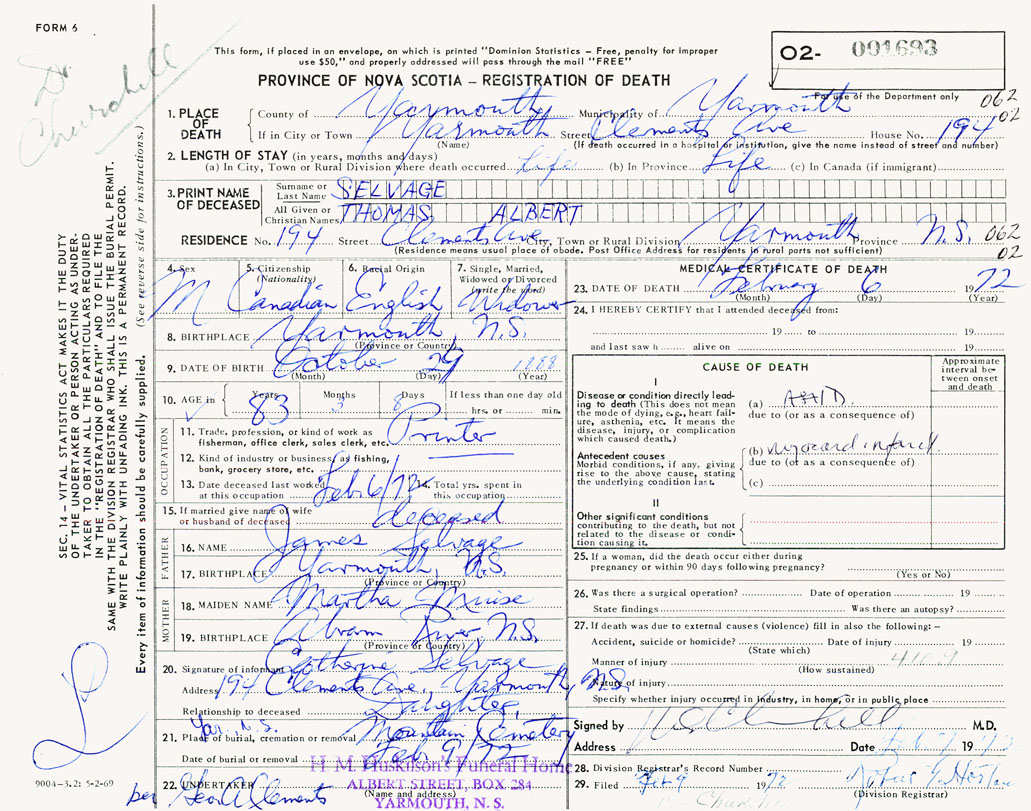 FORM 6
Dr. Churchill
This form, if placed in an envelope, on which is printed "Dominion Statistics – Free, penalty for improper
use $50," and properly addressed will pass through the mail "FREE"
O2- 001693
PROVINCE OF NOVA SCOTIA – REGISTRATION OF DEATH
For use of the Department only
062
02
1. PLACE OF DEATH
County of Yarmouth Municipality of Yarmouth
If in City or Town Yarmouth Street Clements Ave House No. 194
(Name) (If death occurred in a hospital or institution, give the name instead of street and number)
2. LENGTH OF STAY (in years, months and days)
(a) In City, Town or Rural Division where death occurred Life (b) In Province Life (c) In Canada (if immigrant)
3. PRINT NAME OF DECEASED
Surname or Last Name SELVAGE
All Given or Christian Names THOMAS ALBERT
RESIDENCE No. 194 Street Clements Ave City, Town or Rural Division Yarmouth Province N.S. 062
(Residence means usual place of abode. Post Office Address for residents in rural parts not sufficient) 02
4. Sex M
5. Citizenship (Nationality) Canadian
6. Racial Origin English
7. Single, Married, Widowed or Divorced (write the word) Widower
8. BIRTHPLACE Yarmouth N.S.
(Province or Country)
9. DATE OF BIRTH October 29 1888
(Month) (Day) (Year)
10. AGE in Years 83 Months 3 Days 8 If less than one day old
hrs. or min.
OCCUPATION
11. Trade, profession, or kind of work as
fisherman, office clerk, sales clerk, etc. Printer
12. Kind of industry or business, as fishing,
bank, grocery store, etc.
13. Date deceased last worked at this occupation Feb. 6/72
14. Total yrs. spent in this occupation
15. If married give name of wife
or husband of deceased deceased
FATHER
16. NAME James Selvage
17. BIRTHPLACE Yarmouth, N.S.
(Province or Country)
MOTHER
18. MAIDEN NAME Martha Muise
19. BIRTHPLACE Abram River, N.S.
(Province or Country)
20. Signature of informant Catherine Selvage
Address 194 Clements Ave., Yarmouth, N.S.
Relationship to deceased Daughter
Yar. N.S.
21. Place of burial, cremation or removal Mountain Cemetery
Date of burial or removal Feb. 9/72
H. M. Huskilson's Funeral Home
ALBERT STREET, BOX 284
YARMOUTH, N. S.
22. UNDERTAKER
(Name and address)
per Geo A Clements
MEDICAL CERTIFICATE OF DEATH
23. DATE OF DEATH February 6 1972
(Month) (Day) (Year)
24. I HEREBY CERTIFY that I attended deceased from:
19 to 19
and last saw h alive on 19
CAUSE OF DEATH
Approximate interval between onset and death
I
Disease or condition directly leading to death (This does not mean
the mode of dying, e.g., heart failure, asthenia, etc. It means the
disease, injury, or complication
which caused death.)
(a)
due to (or as a consequence of)
Antecedent causes
Morbid conditions, if any, giving
rise to the above cause, stating
the underlying condition last.
(b) myocard infarct.
due to (or as a consequence of)
(c)
II
Other significant conditions
contributing to the death, but not
related to the disease or condition causing it.
25. If a woman, did the death occur either during
pregnancy or within 90 days following pregnancy?
(Yes or No)
26. Was there a surgical operation? Date of operation 19
State findings Was there an autopsy?
27. If death was due to external causes (violence) fill in also the following:–
Accident, suicide or homicide? Date of injury 19
(State which)
Manner of injury 410.9
(How sustained)
Nature of injury
Specify whether injury occurred in industry, in home, or in public place
Signed by M.D.
Address Date 19
28. Division Registrar's Record Number
29. Filed Feb 9 1972
(Division Registrar)
SEC. 14 – VITAL STATISTICS ACT MAKES IT THE DUTY
OF THE UNDERTAKER OR PERSON ACTING AS UNDERTAKER TO OBTAIN ALL THE PARTICULARS REQUIRED
IN THE "REGISTRATION OF DEATH" AND TO FILE THE
SAME WITH THE DIVISION REGISTRAR WHO SHALL ISSUE THE BURIAL PERMIT.
WRITE PLAINLY WITH UNFADING INK. THIS IS A PERMANENT RECORD.
Every item of information should be carefully supplied. (See reverse side for instructions.)
9004-3.2: 5-2-69